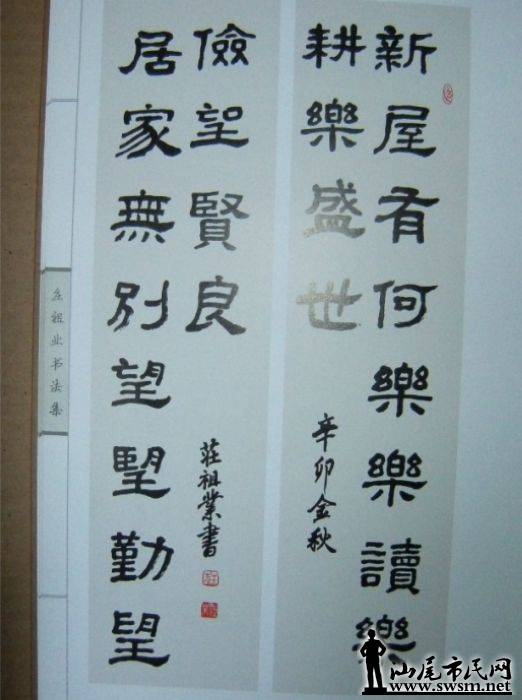 新屋有何樂樂讀樂
耕樂盛世
辛卯金秋
居家無別望望勤望
儉望賢良
莊祖業書
庄祖业书法集
汕尾市民网
www.swsm.net